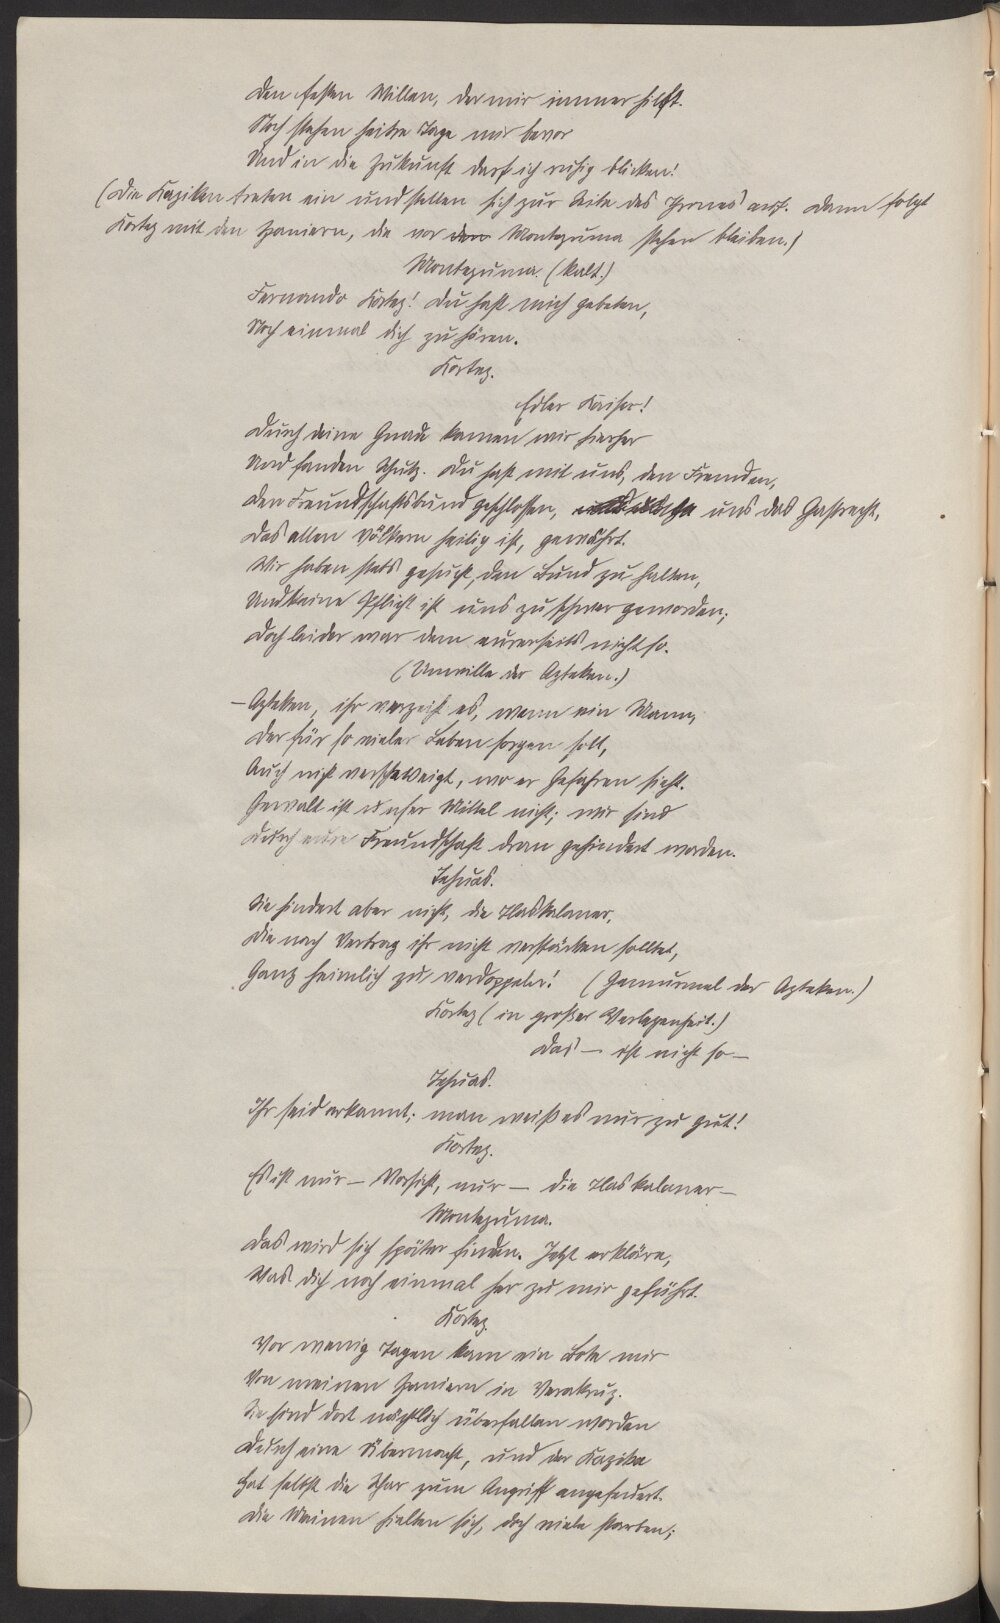 Den festen Willen, der mir immer hilft.
Noch stehen heitre Tage mir bevor
Und in die Zukunft darf ich ruhig blicken!
(Die Kaziken treten ein und stellen sich zur Seite des Thrones auf. Dann folgt
Kortez mit den Spaniern, die vor dem Montezuma stehen bleiben.)
Montezuma. (kalt.)
Fernando Kortez! Du hast mich gebeten,
Noch einmal dich zu hören.
Kortez.
Edler Kaiser!
Durch deine Gnade kamen wir hierher
Und fanden Schutz. Du hast mit uns, den Fremden,
Den Freundschaftsbund geschlossen, uns das Gastrecht,
Das allen Völkern heilig ist, gewährt.
Wir haben stets gesucht, den Bund zu halten,
Und keine Pflicht ist uns zu schwer geworden;
Doch leider war dem eurerseits nicht so.
(Unwille der Azteken.)
– Azteken, ihr verzeiht es, wenn ein Mann,
Der für so vieler Leben sorgen soll,
Auch nicht verschweigt, wo er Gefahren sieht.
Gewalt ist unser Mittel nicht; wir sind
Durch eure Freundschaft dran gehindert worden.
Tehuas.
Sie hindert aber nicht, die Tlaskalaner,
Die nach Vertrag ihr nicht verstärken solltet,
Ganz heimlich zu verdoppeln! (Gemurmel der Azteken.)
Kortez (in großer Verlegenheit.)
Das – ist nicht so –
Tehuas.
Ihr seid erkannt; man weiß es nur zu gut!
Kortez.
Es ist nur – Vorsicht, nur – die Tlaskalaner –
Montezuma.
Das wird sich später finden. Jetzt erkläre,
Was dich noch einmal her zu mir geführt.
Kortez.
Vor wenig Tagen kam ein Bote mir
Von meinen Spaniern in Verakruz.
Sie sind dort nächtlich überfallen worden
Durch eine Übermacht, und der Kazike
Hat selbst die Schar zum Angriff angefeuert.
Die Meinen hielten sich, doch viele starben;